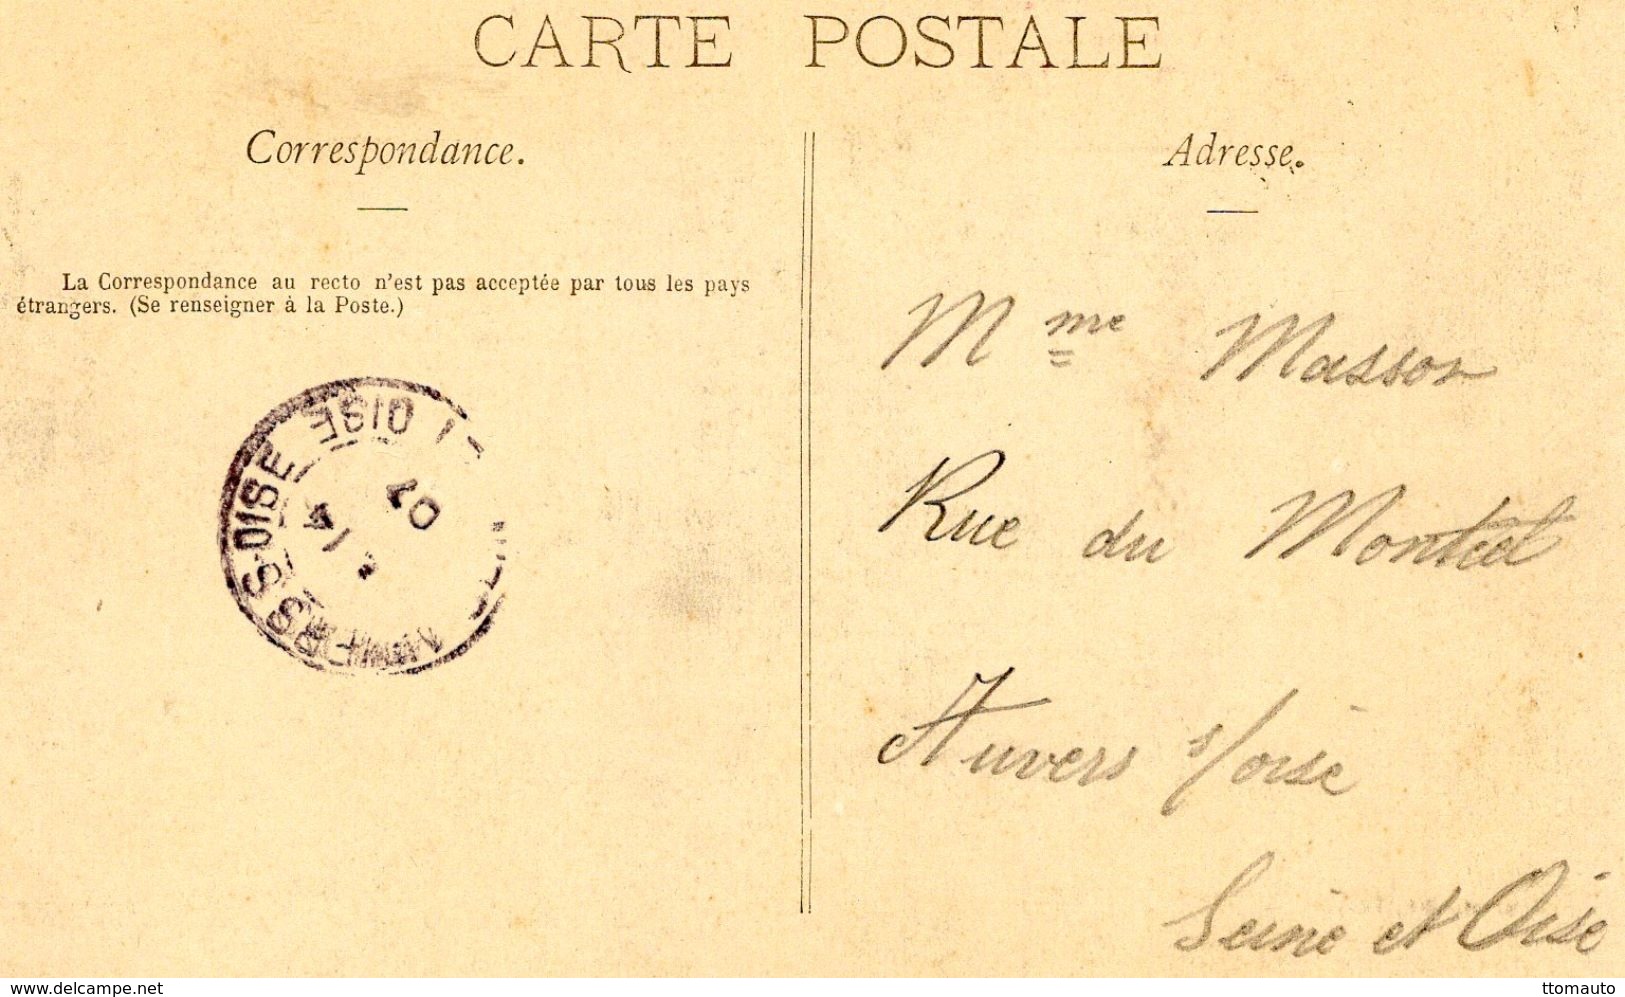 CARTE POSTALE
Correspondance.
La Correspondance au recto n'est pas acceptée par tous les pays
étrangers. (Se renseigner à la Poste.)
S-OISE
OISE
07
Adresse.
Mme Masson
Rue du Montcel
Auvers s/oise
Seine et Oise
www.delcampe.net
ttomauto